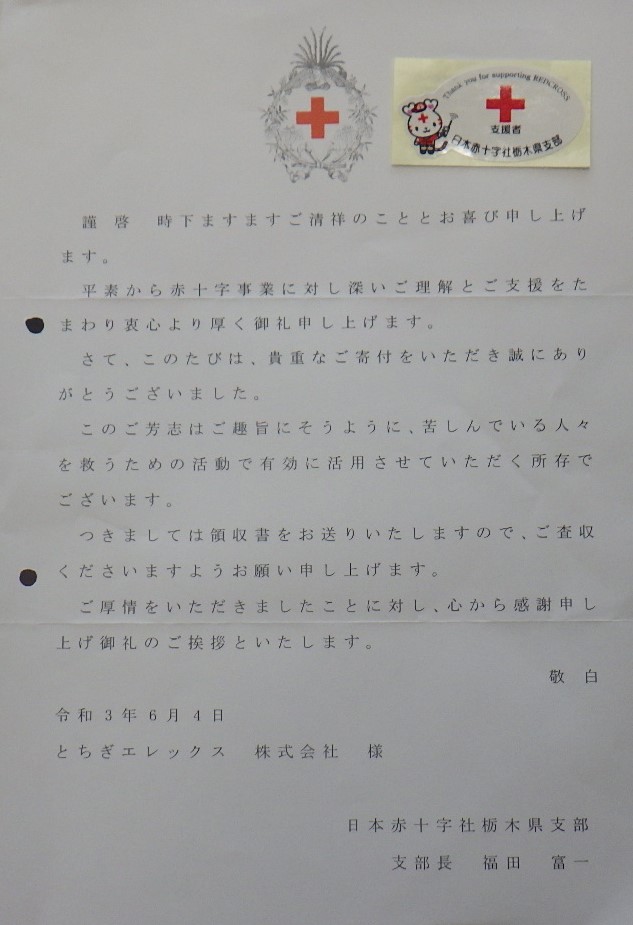 Thank you for supporting REDCROSS
支援者
日本赤十字社栃木県支部
謹啓　時下ますますご清祥のこととお喜び申し上げ
ます。
平素から赤十字事業に対し深いご理解とご支援をた
まわり衷心より厚く御礼申し上げます。
さて、このたびは、貴重なご寄付をいただき誠にあり
がとうございました。
このご芳志はご趣旨にそうように、苦しんでいる人々
を救うための活動で有効に活用させていただく所存で
ございます。
つきましては領収書をお送りいたしますので、ご査収
くださいますようお願い申し上げます。
ご厚情をいただきましたことに対し、心から感謝申し
上げ御礼のご挨拶といたします。
敬白
令和3年6月4日
とちぎエレックス　株式会社　様
日本赤十字社栃木県支部
支部長　福田　富一